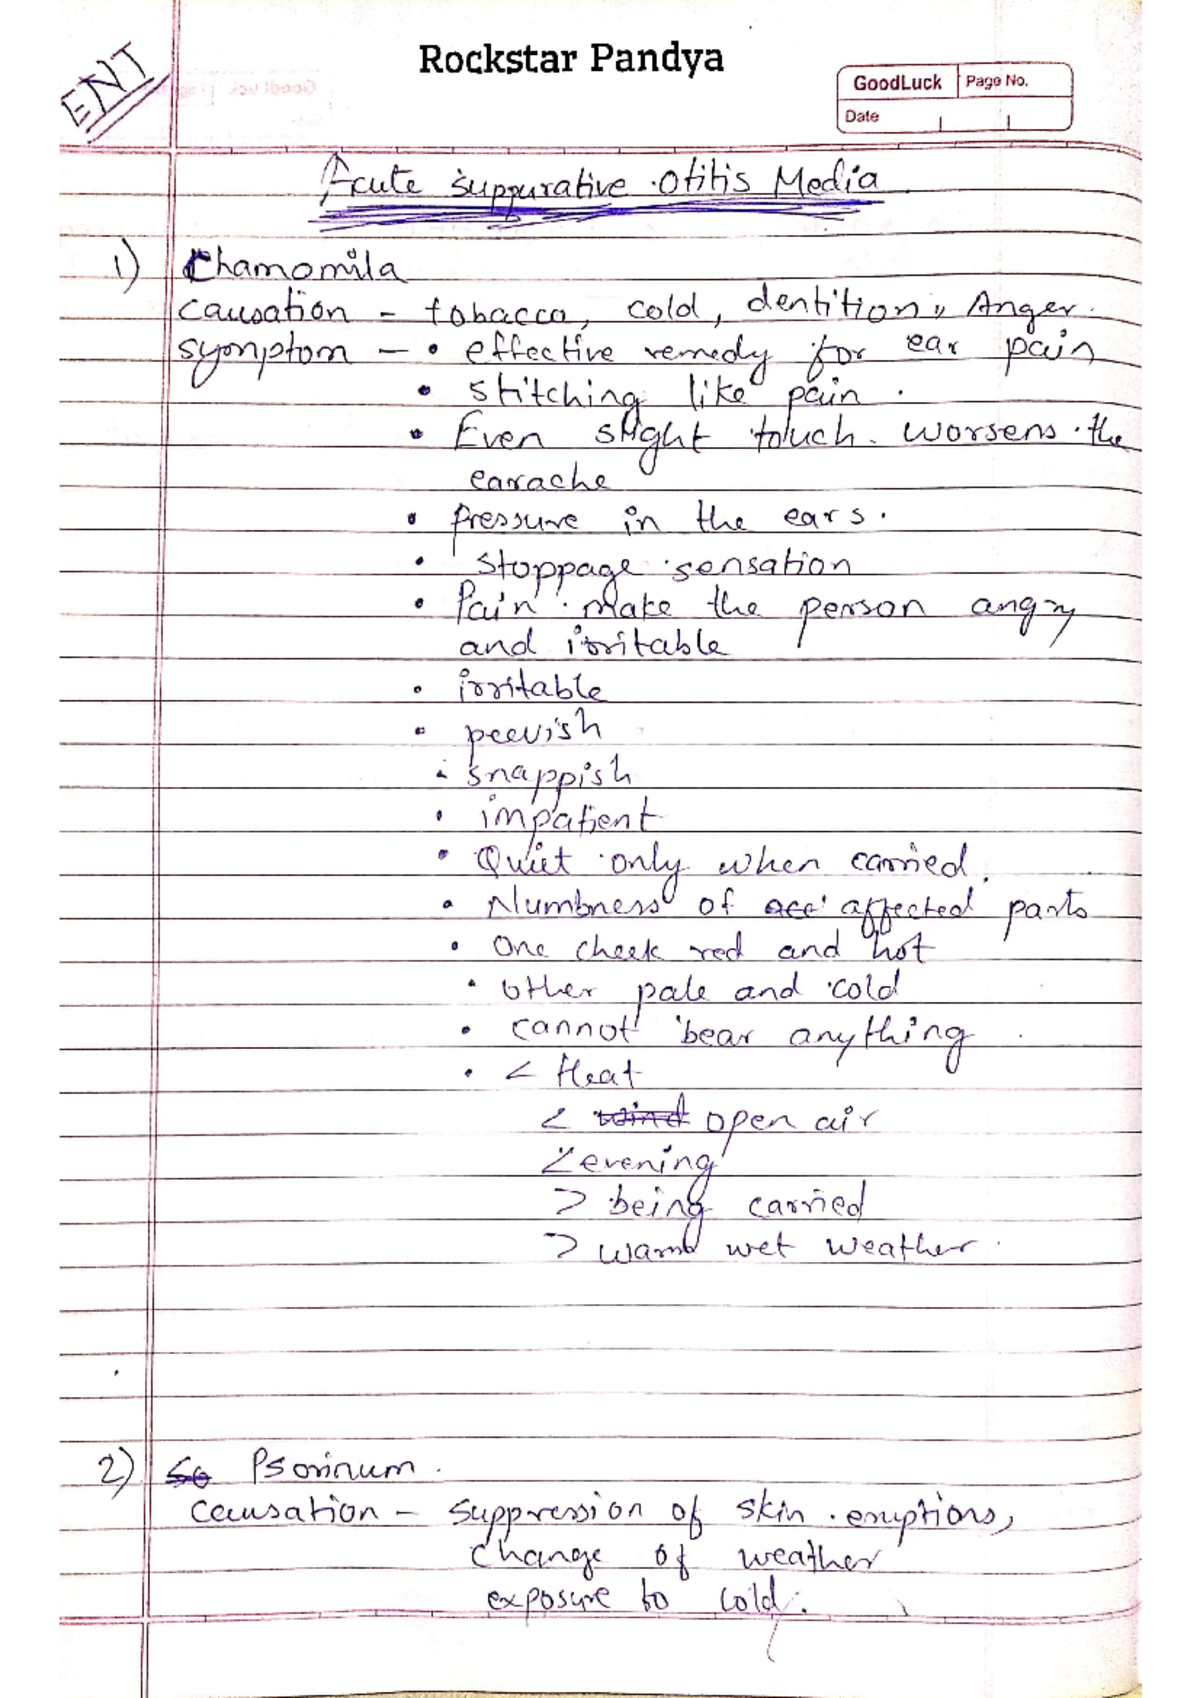 ENT
Rockstar Pandya
GoodLuck Page No.
Date
Acute suppurative otitis Media
1) Chamomila
causation - tobacco, cold, dentition, Anger.
symptom - • effective remedy for ear pain
• stitching like pain.
• Even slight touch worsens the
earache
• pressure in the ears.
• stoppage sensation
• Pain make the person angry
and irritable
• irritable
• peevish
• snappish
• impatient
• Quiet only when carried.
• Numbness of affected parts
• one cheek red and hot
• other pale and cold
• cannot bear anything
• < Heat
< wind open air
< evening
> being carried
> warm wet weather.
2) So Psorinum.
causation - suppression of skin eruptions,
change of weather
exposure to cold.